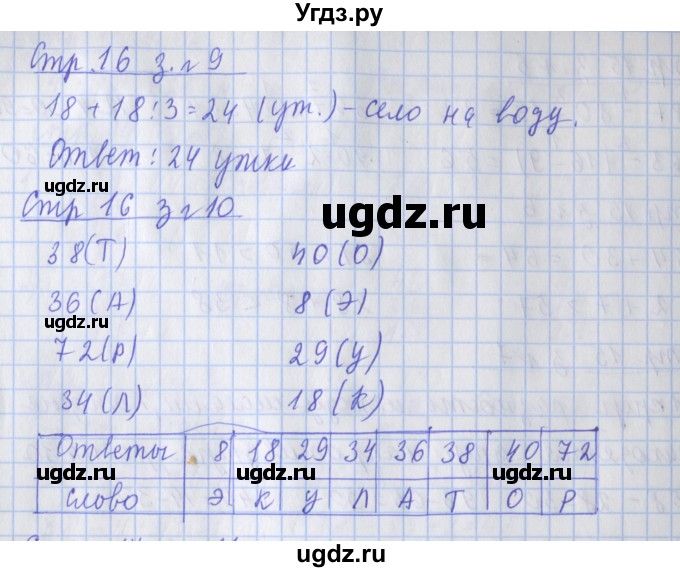 Угдз.ру
Стр. 16 з. г 9
18 + 18 : 3 = 24 (ут.) - село на воду.
Ответ: 24 утки
ugdz.ru
Стр 16 з г 10
ugdz.ru
38(Т) 40(О)
36(А) 8(Э)
ugdz.ru ugdz.ru
72(Р) 29(У)
ugdz.ru ugdz.ru
34(Л) 18(К)
ugdz.ru ugdz.ru
Ответы 8 18 29 34 36 38 40 72
ugdz.ru ugdz.ru
слово Э К У Л А Т О Р
ugdz.ru